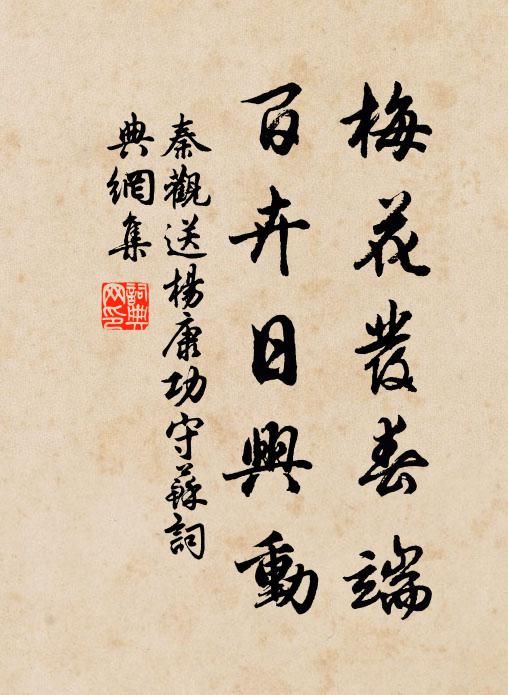 梅花發春端
百卉日興動
秦觀送楊康功守蘇詞
典網集
詞典
网印